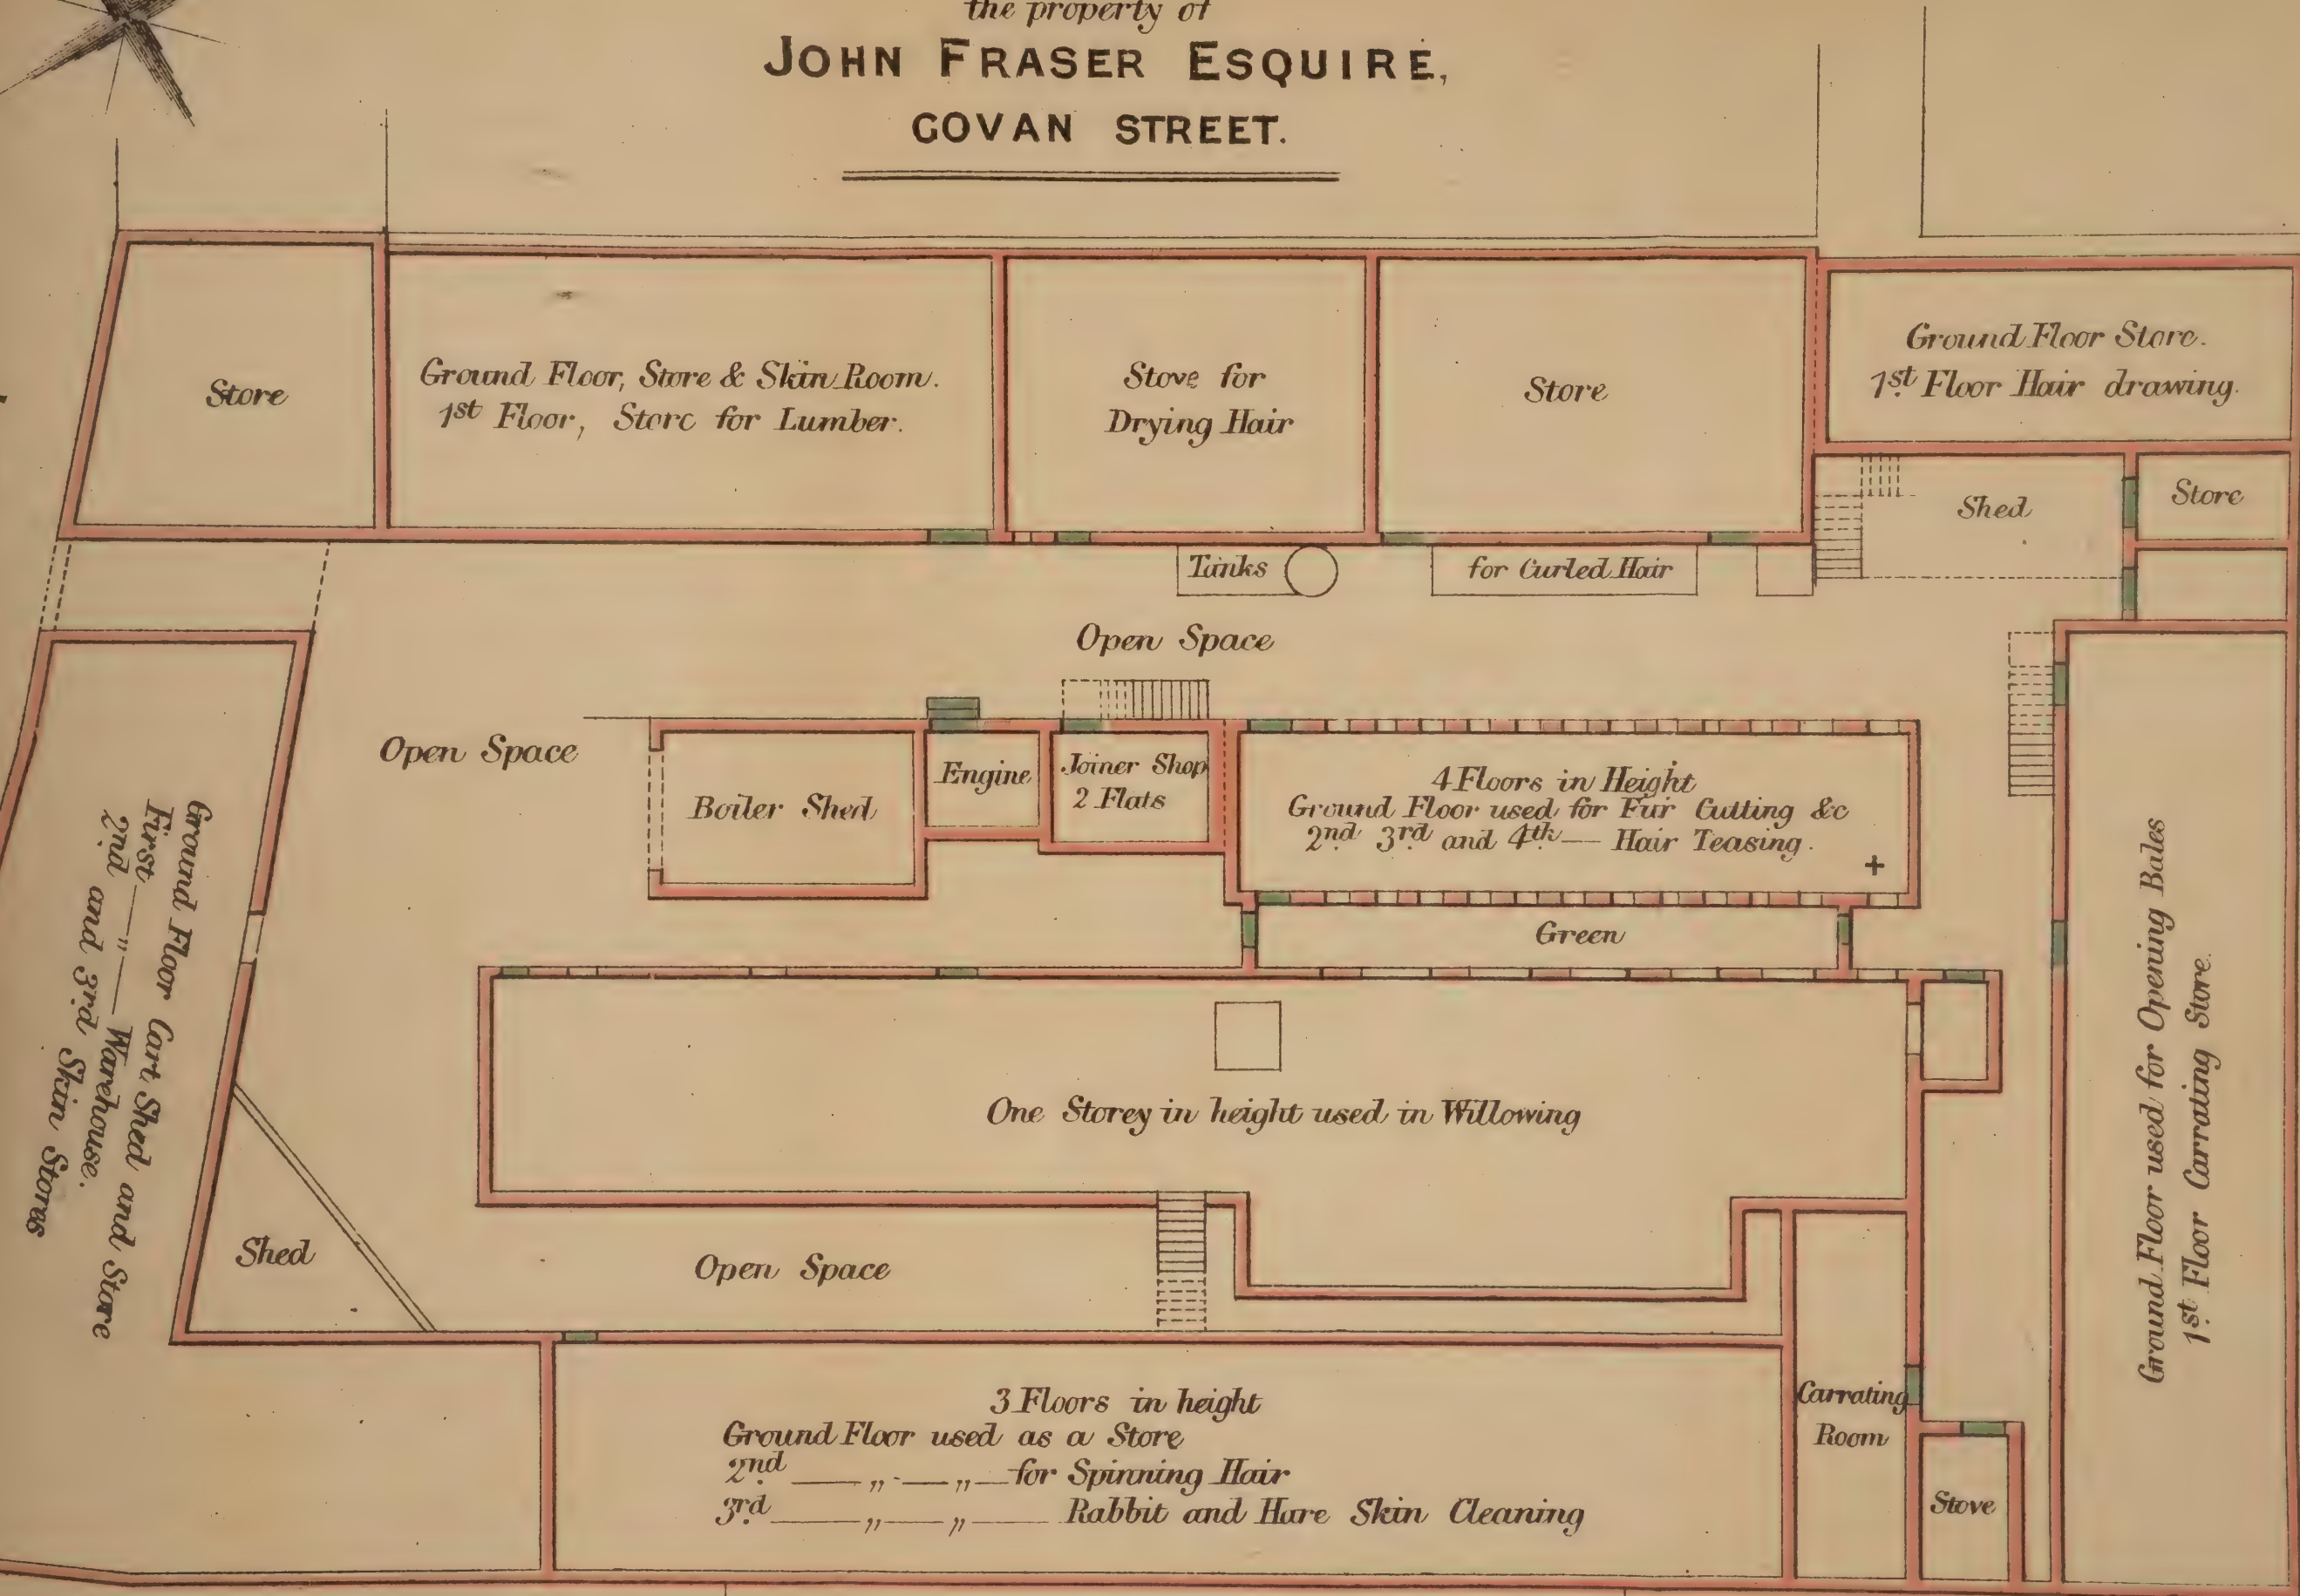 the property of
JOHN FRASER ESQUIRE,
GOVAN STREET.
Store
Ground Floor, Store & Skin Room.
1st Floor, Store for Lumber.
Stove for
Drying Hair
Store
Ground Floor Store.
1st Floor Hair drawing.
Shed
Store
Tanks
for Curled Hair
Open Space
Open Space
Boiler Shed
Engine
Joiner Shop
2 Flats
4 Floors in Height
Ground Floor used for Fur Cutting &c
2nd 3rd and 4th — Hair Teasing.
+
Green
Ground Floor Cart Shed and Store
First — „ — Warehouse.
2nd and 3rd Skin Stores
One Storey in height used in Willowing
Ground Floor used for Opening Bales
1st Floor Carrating Store.
Shed
Open Space
3 Floors in height
Ground Floor used as a Store
2nd — „ — „ — for Spinning Hair
3rd — „ — „ — Rabbit and Hare Skin Cleaning
Carrating
Room
Stove